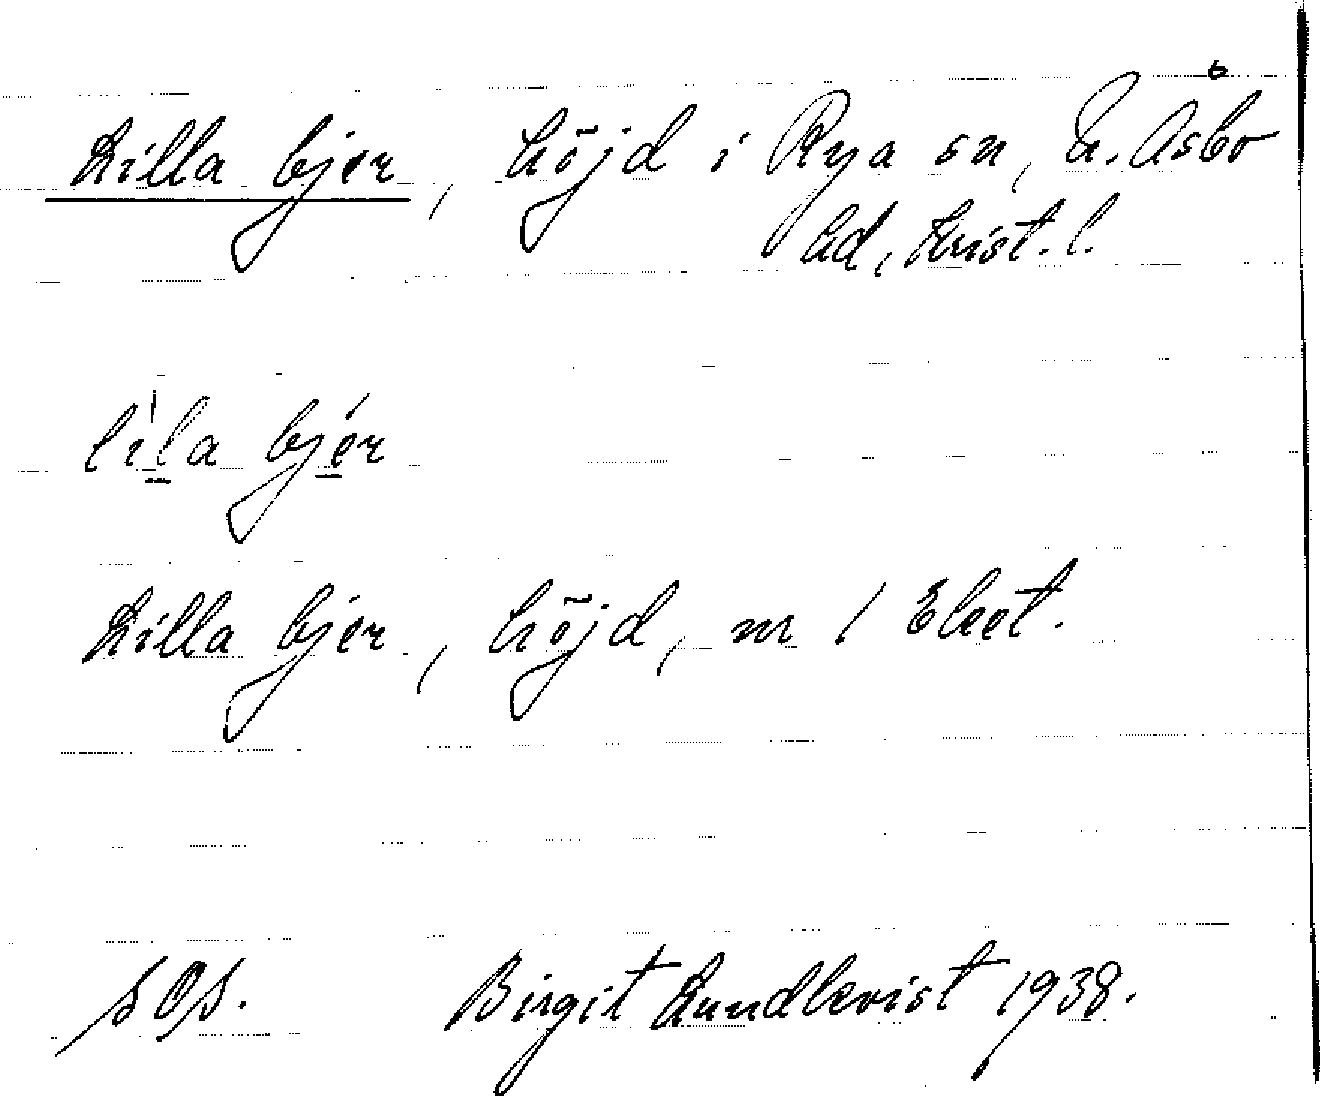 Lilla bjer, höjd i Rya sn, N. Åsbo
hd, Krist. l.
lila bjér
Lilla bjer, höjd, m / Eket.
SOS. Birgit Lundkvist 1938.